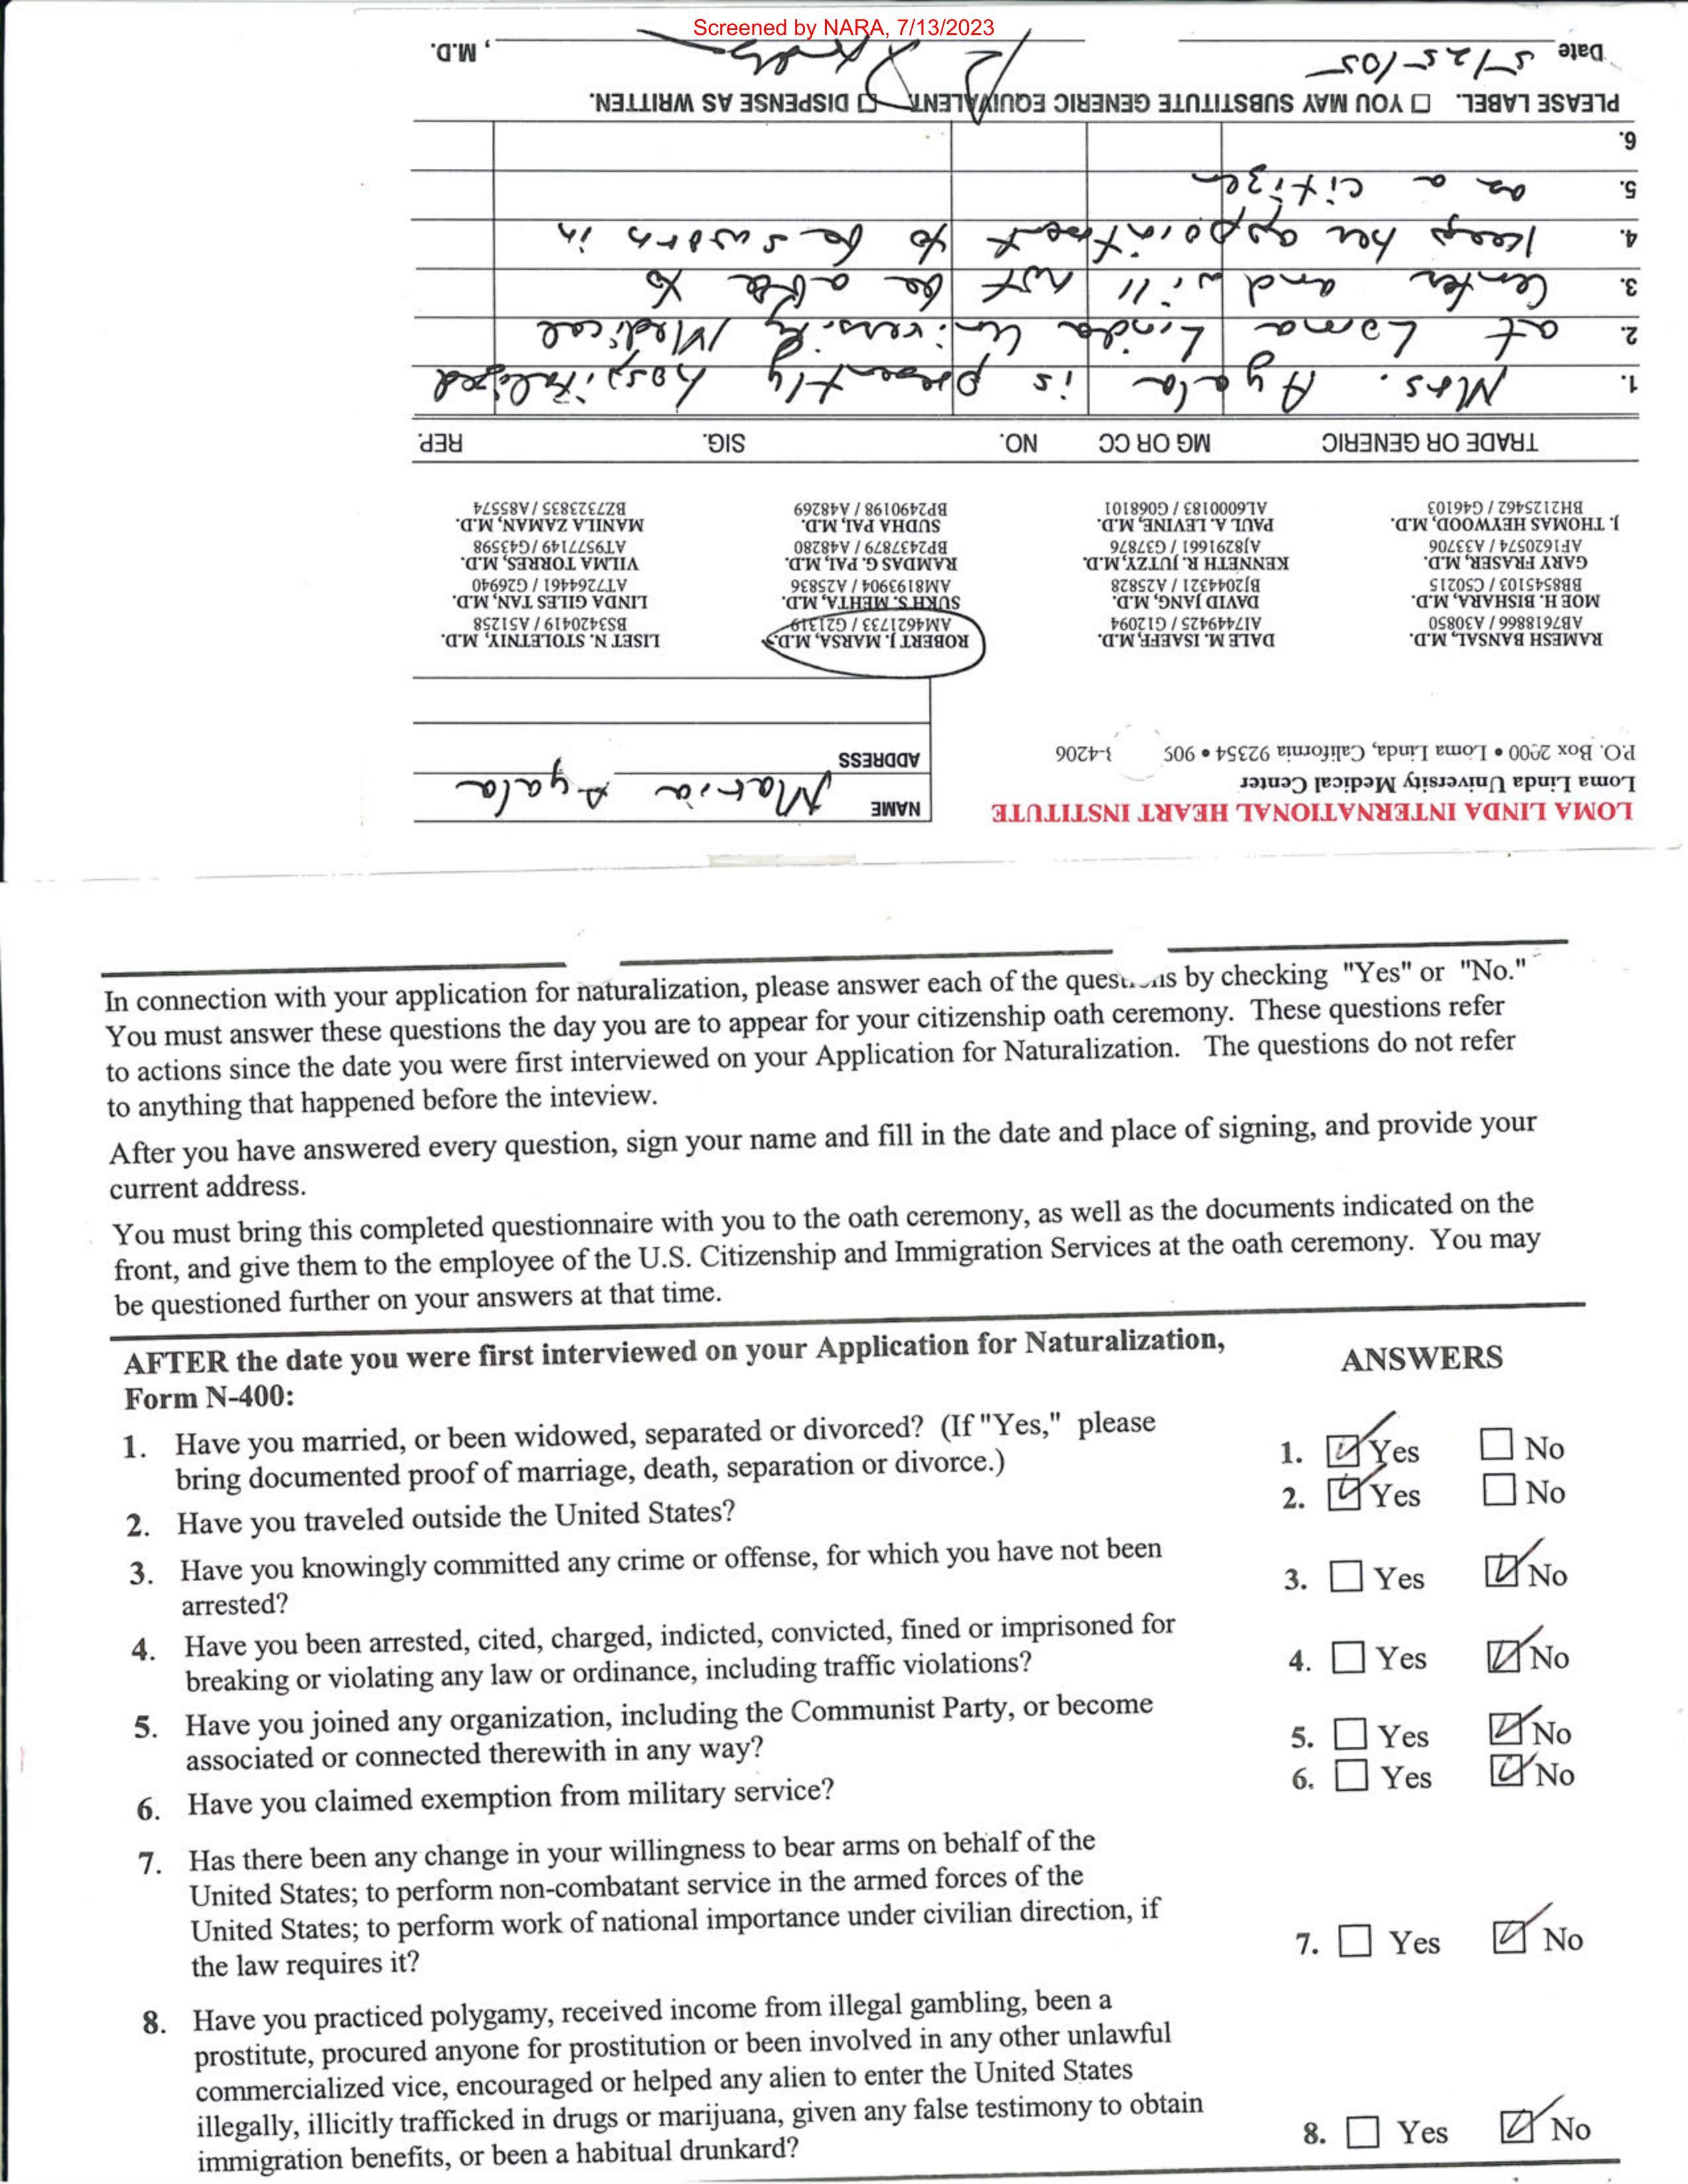 Screened by NARA, 7/13/2023
LOMA LINDA INTERNATIONAL HEART INSTITUTE
Loma Linda University Medical Center
P.O. Box 2000 • Loma Linda, California 92354 • 909 -4206
NAME Maria Ayala
ADDRESS
RAMESH BANSAL, M.D.
AB7618866 / A30850
MOE H. BISHARA, M.D.
BB8545103 / C50215
GARY FRASER, M.D.
AF1620574 / A33706
J. THOMAS HEYWOOD, M.D.
BH2125462 / G46103
DALE M. ISAEFF, M.D.
AI7449425 / G12094
DAVID JANG, M.D.
BJ2044321 / A25828
KENNETH R. JUTZY, M.D.
AJ8291661 / G37876
PAUL A. LEVINE, M.D.
AL6000183 / G068101
ROBERT J. MARSA, M.D.
AM4621733 / G21319
SUKH S. MEHTA, M.D.
AM8193904 / A25836
RAMDAS G. PAI, M.D.
BP2437879 / A48280
SUDHA PAI, M.D.
BP2490198 / A48269
LISET N. STOLETNIY, M.D.
BS3420419 / A51258
LINDA GILES TAN, M.D.
AT7264461 / G26940
VILMA TORRES, M.D.
AT9577149 / G43598
MANILA ZAMAN, M.D.
BZ7323835 / A85574
TRADE OR GENERIC MG OR CC NO. SIG. REP.
1. Mrs. Ayala is presently hospitalized
2. at Loma Linda University Medical
3. Center and will not be able to
4. keep her appointment to be sworn in
5. as a citizen
6.
PLEASE LABEL. ☐ YOU MAY SUBSTITUTE GENERIC EQUIVALENT. ☐ DISPENSE AS WRITTEN.
Date 5/25/05 , M.D.
In connection with your application for naturalization, please answer each of the ques ns by checking "Yes" or "No."
You must answer these questions the day you are to appear for your citizenship oath ceremony. These questions refer
to actions since the date you were first interviewed on your Application for Naturalization. The questions do not refer
to anything that happened before the inteview.
After you have answered every question, sign your name and fill in the date and place of signing, and provide your
current address.
You must bring this completed questionnaire with you to the oath ceremony, as well as the documents indicated on the
front, and give them to the employee of the U.S. Citizenship and Immigration Services at the oath ceremony. You may
be questioned further on your answers at that time.
AFTER the date you were first interviewed on your Application for Naturalization,
Form N-400:
ANSWERS
1. Have you married, or been widowed, separated or divorced? (If "Yes," please
bring documented proof of marriage, death, separation or divorce.)
1. ☑ Yes ☐ No
2. Have you traveled outside the United States?
2. ☑ Yes ☐ No
3. Have you knowingly committed any crime or offense, for which you have not been
arrested?
3. ☐ Yes ☑ No
4. Have you been arrested, cited, charged, indicted, convicted, fined or imprisoned for
breaking or violating any law or ordinance, including traffic violations?
4. ☐ Yes ☑ No
5. Have you joined any organization, including the Communist Party, or become
associated or connected therewith in any way?
5. ☐ Yes ☑ No
6. Have you claimed exemption from military service?
6. ☐ Yes ☑ No
7. Has there been any change in your willingness to bear arms on behalf of the
United States; to perform non-combatant service in the armed forces of the
United States; to perform work of national importance under civilian direction, if
the law requires it?
7. ☐ Yes ☑ No
8. Have you practiced polygamy, received income from illegal gambling, been a
prostitute, procured anyone for prostitution or been involved in any other unlawful
commercialized vice, encouraged or helped any alien to enter the United States
illegally, illicitly trafficked in drugs or marijuana, given any false testimony to obtain
immigration benefits, or been a habitual drunkard?
8. ☐ Yes ☑ No